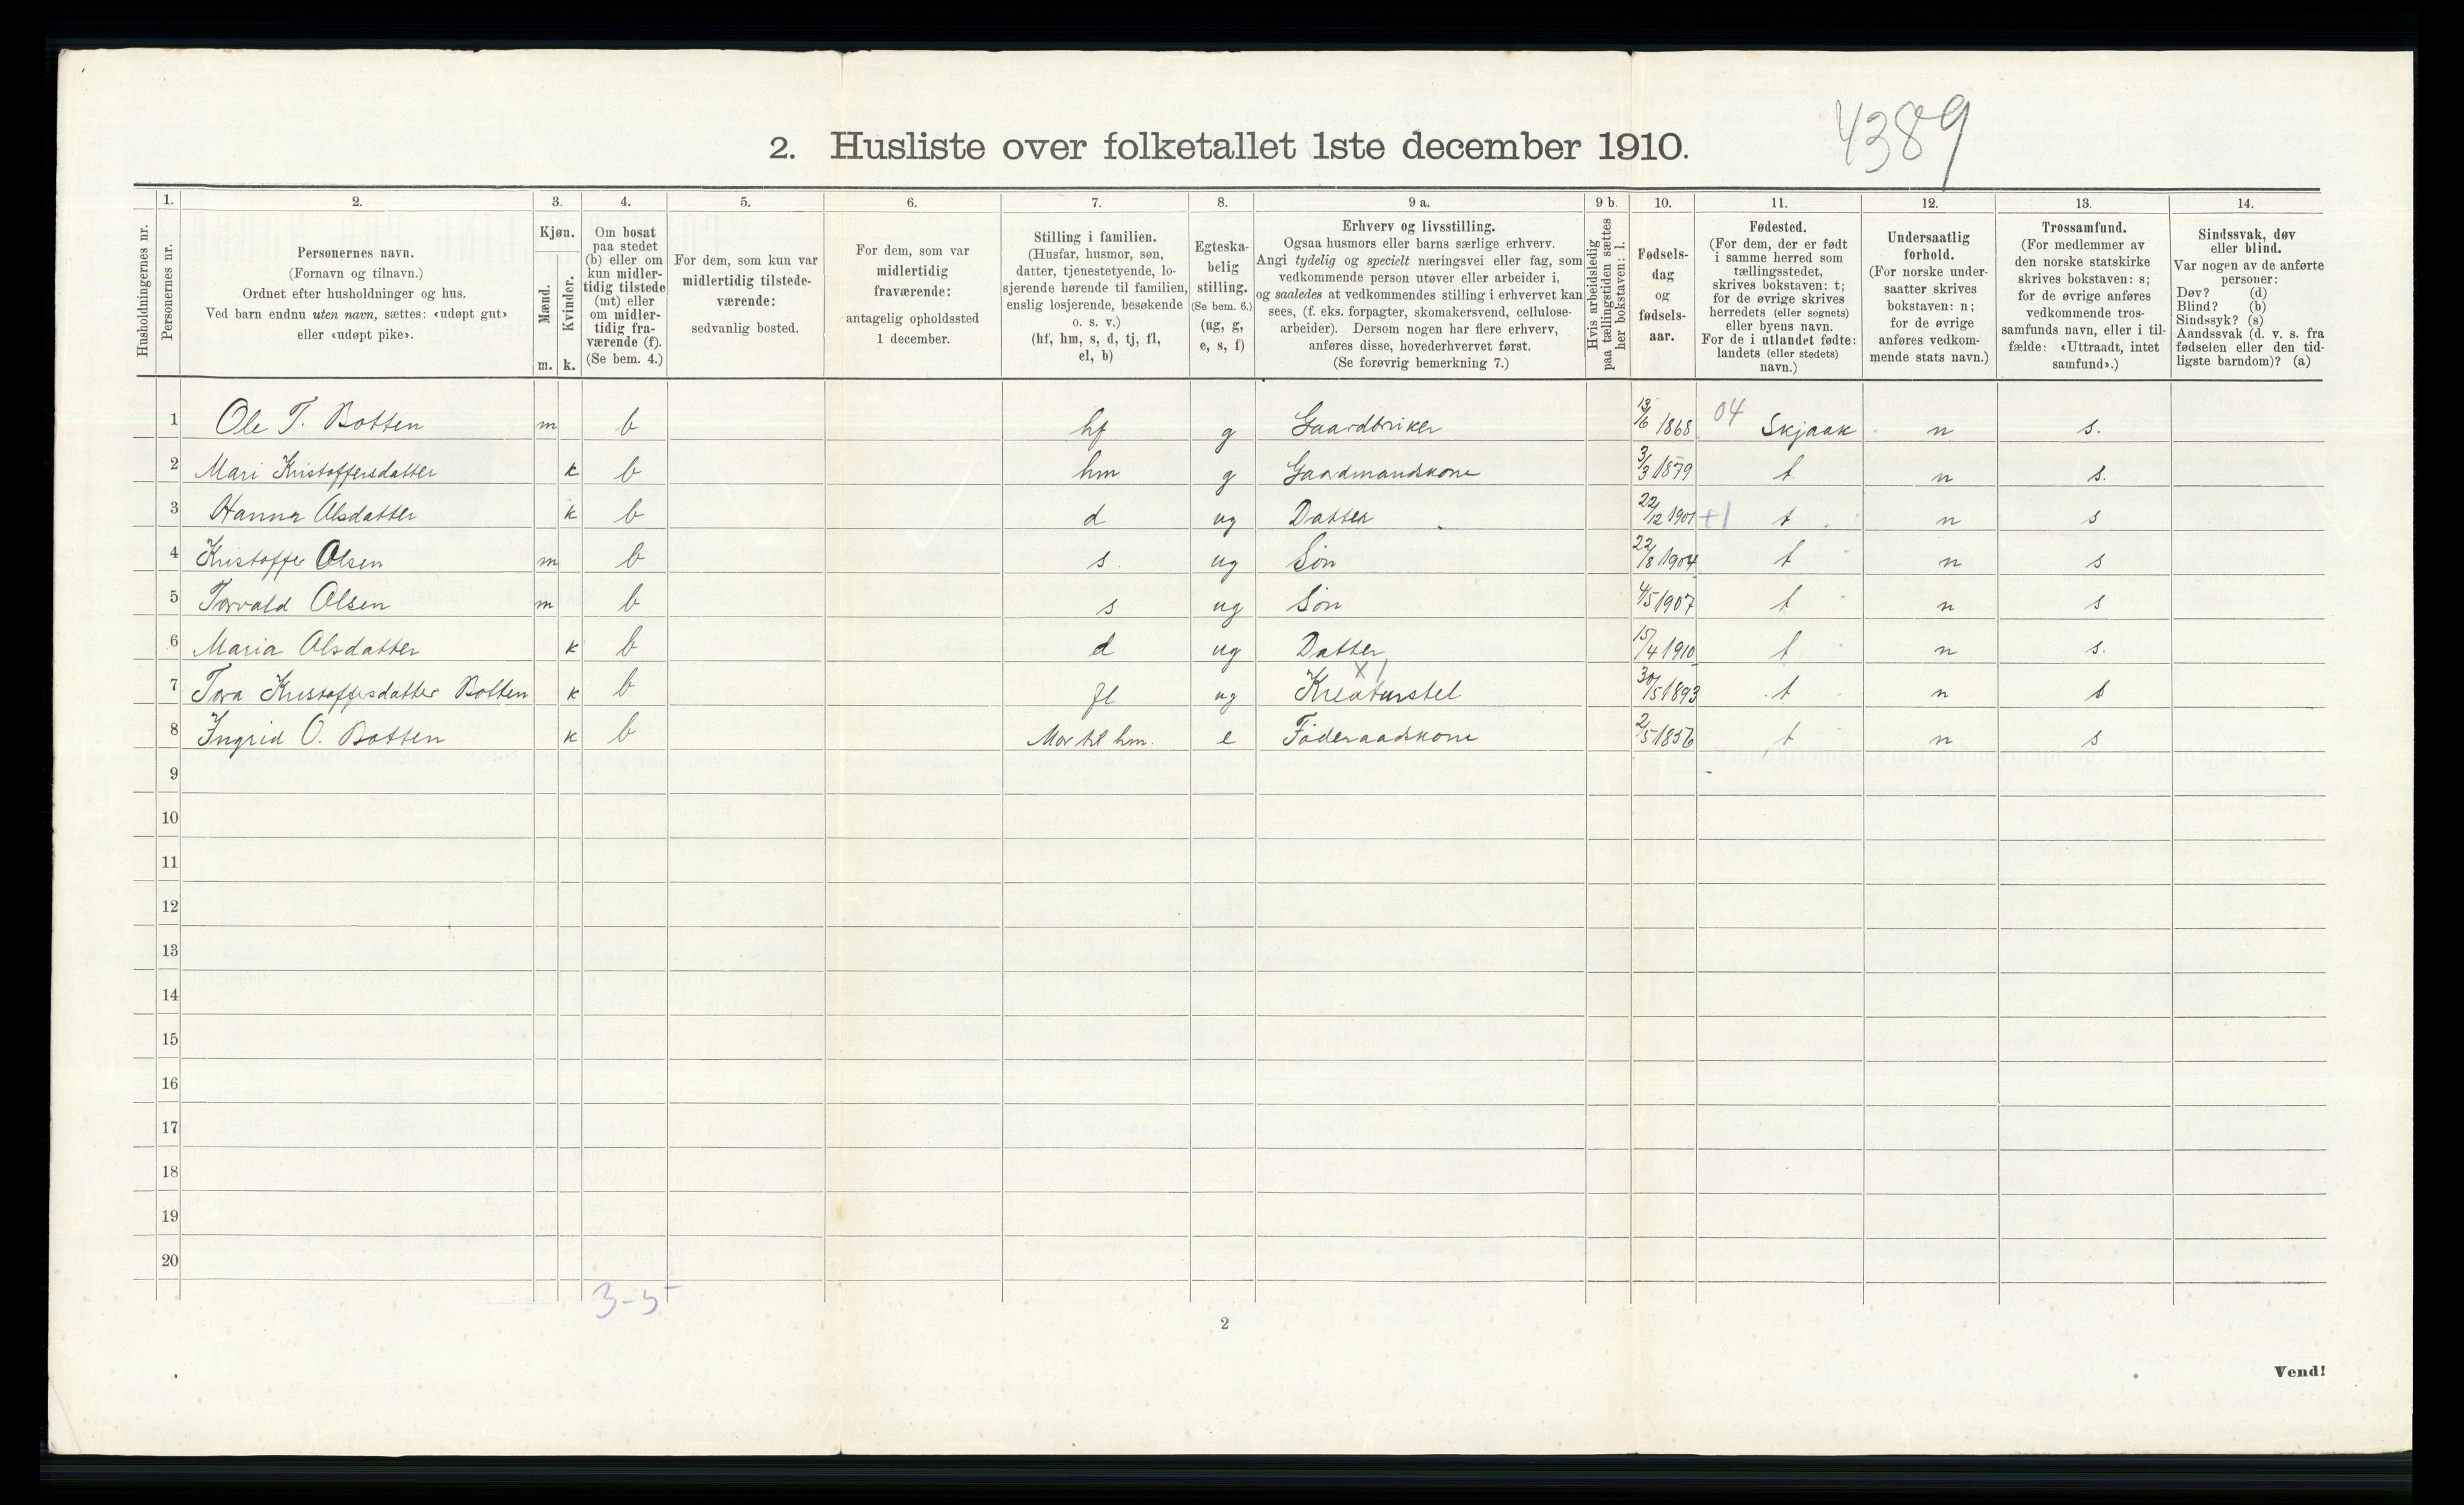 4389
2. Husliste over folketallet 1ste december 1910.
Husholdningernes nr.
1.
Personernes nr.
2.
Personernes navn.
(Fornavn og tilnavn.)
Ordnet efter husholdninger og hus.
Ved barn endnu uten navn, sættes: «udøpt gut»
eller «udøpt pike».
3.
Kjøn.
Mænd.
Kvinder.
m. k.
4.
Om bosat
paa stedet
(b) eller om
kun midler-
tidig tilstede
(mt) eller
om midler-
tidig fra-
værende (f).
(Se bem. 4.)
5.
For dem, som kun var
midlertidig tilstede-
værende:
sedvanlig bosted.
6.
For dem, som var
midlertidig
fraværende:
antagelig opholdssted
1 december.
7.
Stilling i familien.
(Husfar, husmor, søn,
datter, tjenestetyende, lo-
sjerende hørende til familien,
enslig losjerende, besøkende
o. s. v.)
(hf, hm, s, d, tj, fl,
el, b)
8.
Egteska-
belig
stilling.
(Se bem. 6.)
(ug, g,
e, s, f)
9 a.
Erhverv og livsstilling.
Ogsaa husmors eller barns særlige erhverv.
Angi tydelig og specielt næringsvei eller fag, som
vedkommende person utøver eller arbeider i,
og saaledes at vedkommendes stilling i erhvervet kan
sees, (f. eks. forpagter, skomakersvend, cellulose-
arbeider). Dersom nogen har flere erhverv,
anføres disse, hovederhvervet først.
(Se forøvrig bemerkning 7.)
9 b.
Hvis arbeidsledig
paa tællingstiden sættes
her bokstaven: l.
10.
Fødsels-
dag
og
fødsels-
aar.
11.
Fødested.
(For dem, der er født
i samme herred som
tællingsstedet,
skrives bokstaven: t;
for de øvrige skrives
herredets (eller sognets)
eller byens navn.
For de i utlandet fødte:
landets (eller stedets)
navn.)
12.
Undersaatlig
forhold.
(For norske under-
saatter skrives
bokstaven: n;
for de øvrige
anføres vedkom-
mende stats navn.)
13.
Trossamfund.
(For medlemmer av
den norske statskirke
skrives bokstaven: s;
for de øvrige anføres
vedkommende tros-
samfunds navn, eller i til-
fælde: «Uttraadt, intet
samfund».)
14.
Sindssvak, døv
eller blind.
Var nogen av de anførte
personer:
Døv? (d)
Blind? (b)
Sindssyk? (s)
Aandssvak (d. v. s. fra
fødselen eller den tid-
ligste barndom)? (a)
1 Ole T. Botten m b hf g Gaardbruker 13/6 1868 04 Skjaak n s.
2 Mari Kristoffersdatter k b hm g Gaardmandskone 3/3 1879 t n s.
3 Hanna Olsdatter k b d ug Datter 22/12 1901 +1 t n s
4 Kristoffer Olsen m b s. ug Søn 22/8 1904 t n s
5 Torvald Olsen m b s ug Søn 4/5 1907 t n s
6 Maria Olsdatter k b d ug Datter 15/4 1910 t n s.
X 1
7 Tora Kristoffersdatter Botten k b fl ug Kreaturstel 30/5 1893 t n s
8 Ingrid O. Botten k b Mor til hm. e Føderaadskone 2/5 1856 t n s
9
10
11
12
13
14
15
16
17
18
19
20
3-5
2
Vend!